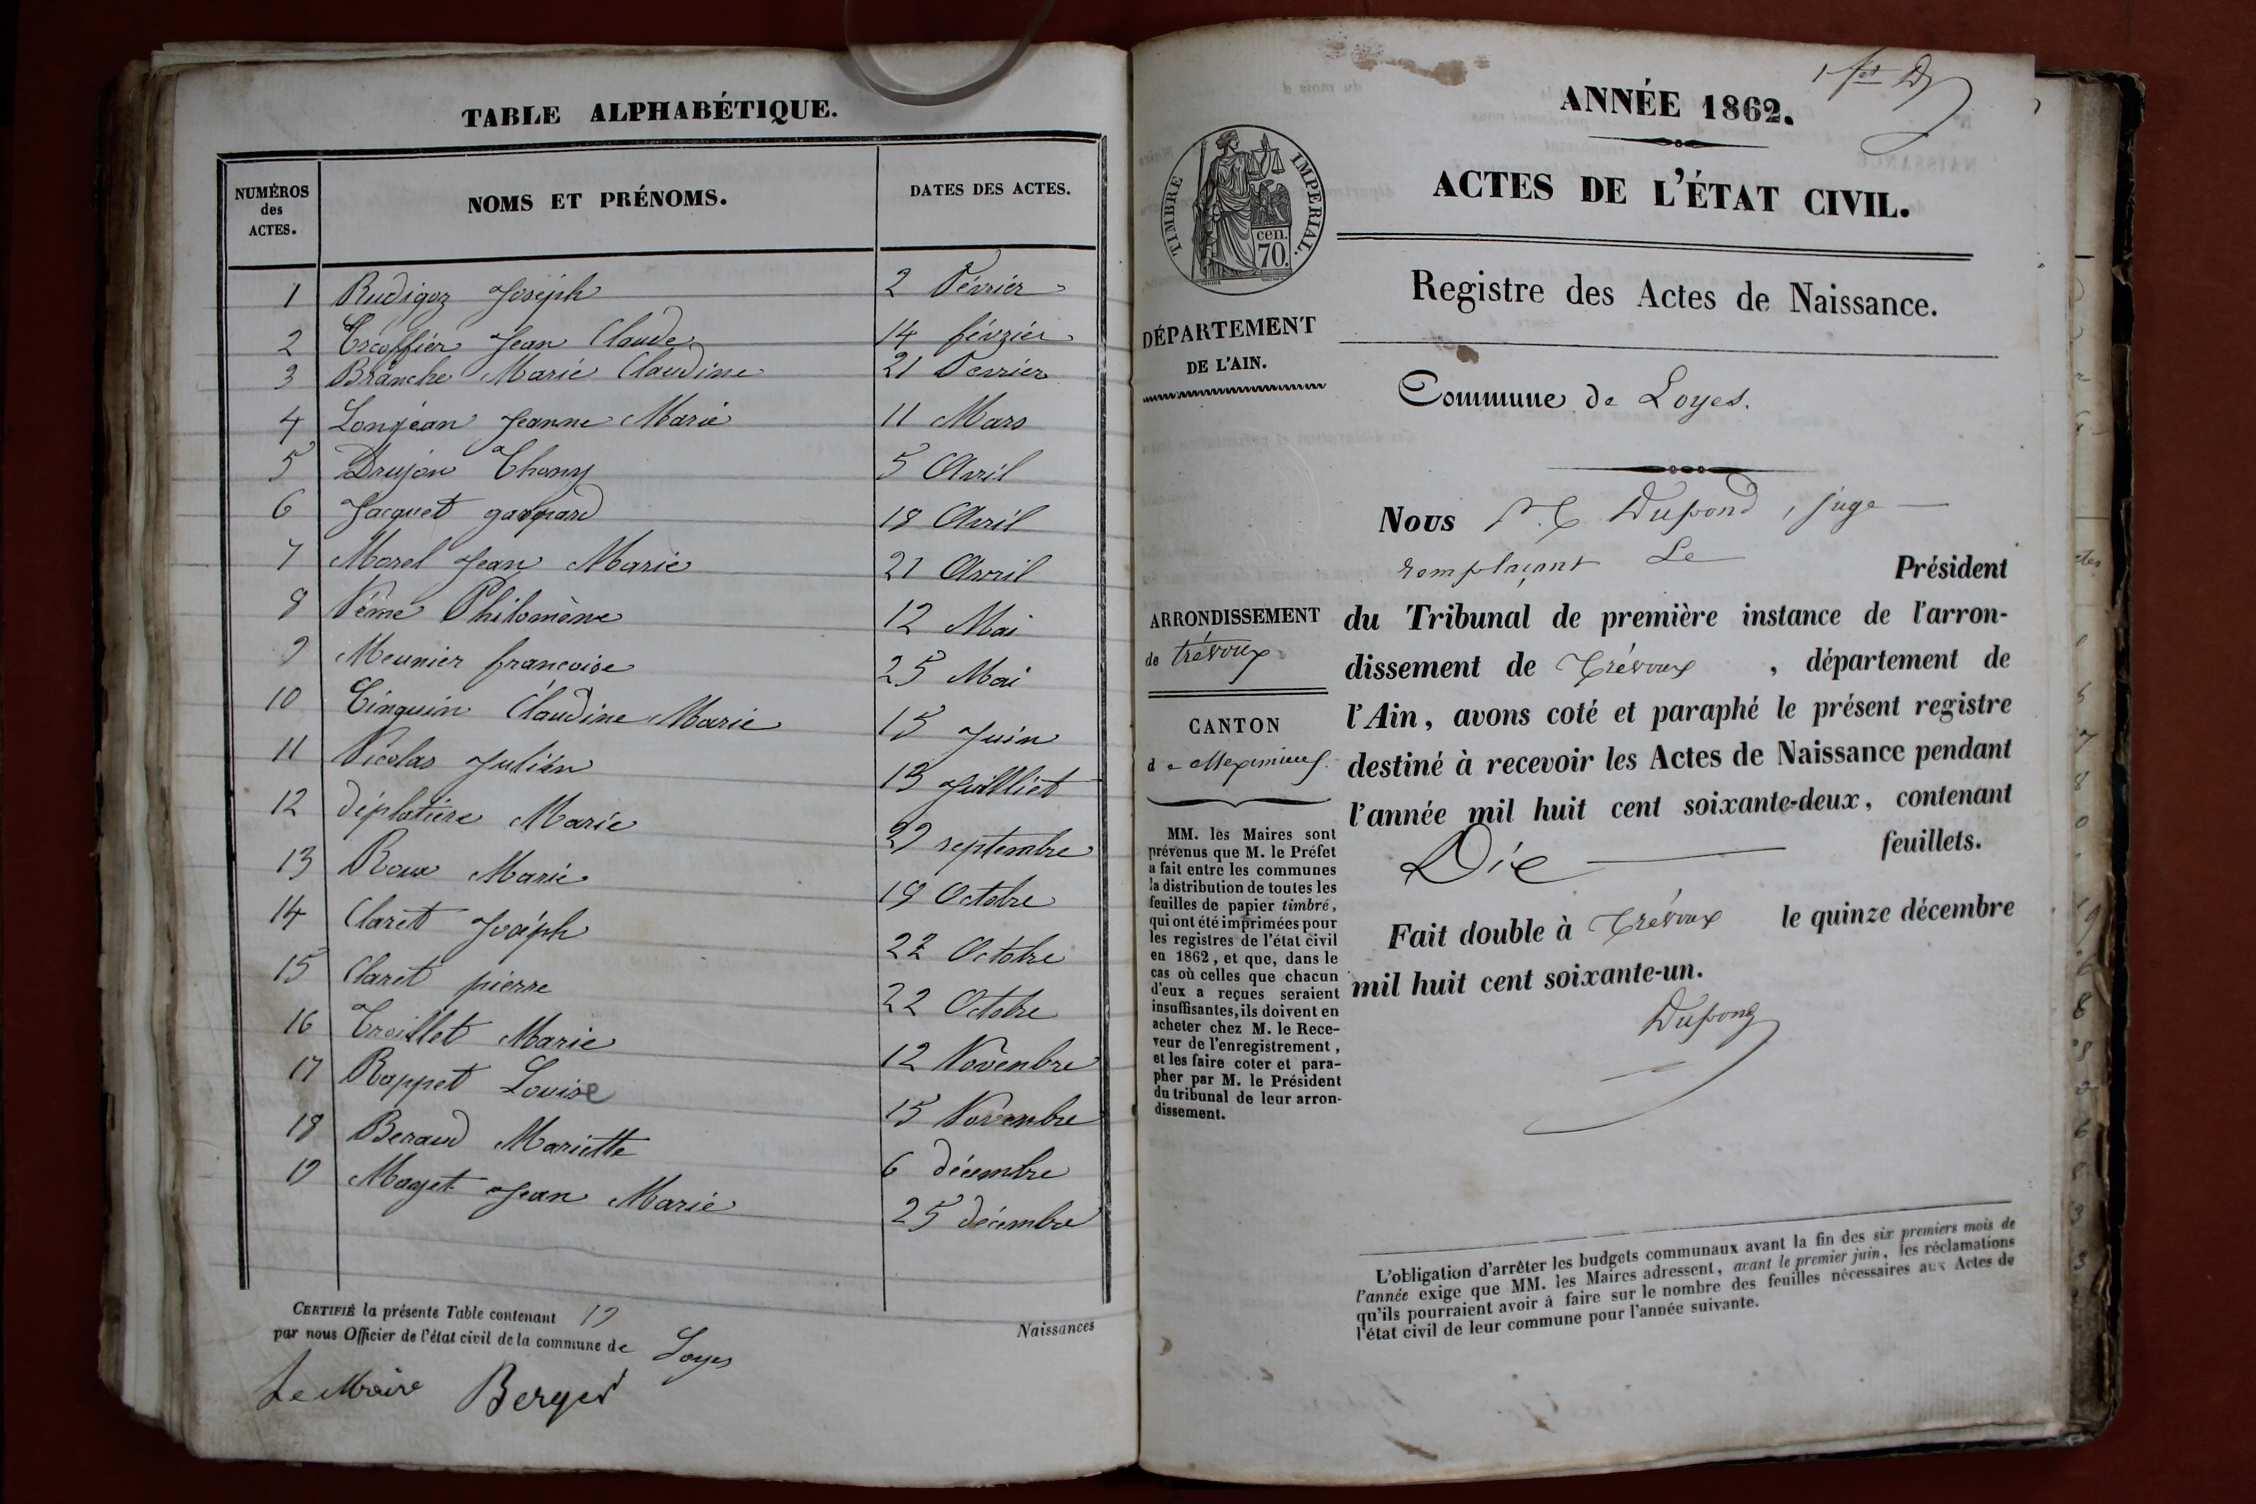 TABLE ALPHABÉTIQUE.
NUMÉROS des ACTES. NOMS ET PRÉNOMS. DATES DES ACTES.
1 Rudigoz Joseph 2 Février
2 Escoffier Jean Claude 14 février
3 Branche Marie Claudine 21 Fevrier
4 Lonjean Jeanne Marie 11 Mars
5 Drujon Thony 5 Avril
6 Jacquet gaspard 18 Avril
7 Morel Jean Marie 21 Avril
8 Véme Philomène 12 Mai
9 Meunier françoise 25 Mai
10 Cinquin Claudine Marie 15 Juin
11 Nicolas Julien 13 Juilliet
12 déplatière Marie 29 septembre
13 Roux Marie 19 Octobre
14 Claret Joseph 22 Octobre
15 Claret pierre 22 Octobre
16 Troillet Marie 12 Novenbre
17 Rappet Louise 15 Novembre
18 Beraud Mariette 6 décembre
19 Moyet Jean Marie 25 décembre
CERTIFIÉ la présente Table contenant 19 Naissances
par nous Officier de l'état civil de la commune de Loyes
Le Maire Berger
ANNÉE 1862.
ACTES DE L'ÉTAT CIVIL.
TIMBRE IMPÉRIAL.
cen.
70.
Registre des Actes de Naissance.
DÉPARTEMENT
DE L'AIN.
Commune de Loyes.
Nous Dupond, juge
remplaçant Le Président
ARRONDISSEMENT
de trévoux
du Tribunal de première instance de l'arron-
dissement de Trévoux, département de
l'Ain, avons coté et paraphé le présent registre
destiné à recevoir les Actes de Naissance pendant
l'année mil huit cent soixante-deux, contenant
Dix feuillets.
Fait double à Trévoux le quinze décembre
mil huit cent soixante-un.
Dupond
CANTON
de Meximieux.
MM. les Maires sont
prévenus que M. le Préfet
a fait entre les communes
la distribution de toutes les
feuilles de papier timbré,
qui ont été imprimées pour
les registres de l'état civil
en 1862, et que, dans le
cas où celles que chacun
d'eux a reçues seraient
insuffisantes, ils doivent en
acheter chez M. le Rece-
veur de l'enregistrement,
et les faire coter et para-
pher par M. le Président
du tribunal de leur arron-
dissement.
L'obligation d'arrêter les budgets communaux avant la fin des six premiers mois de
l'année exige que MM. les Maires adressent, avant le premier juin, les réclamations
qu'ils pourraient avoir à faire sur le nombre des feuilles nécessaires aux Actes de
l'état civil de leur commune pour l'année suivante.